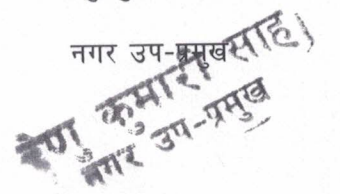 नगर उप-प्रमुख
रेणु कुमारी साह)
नगर उप-प्रमुख